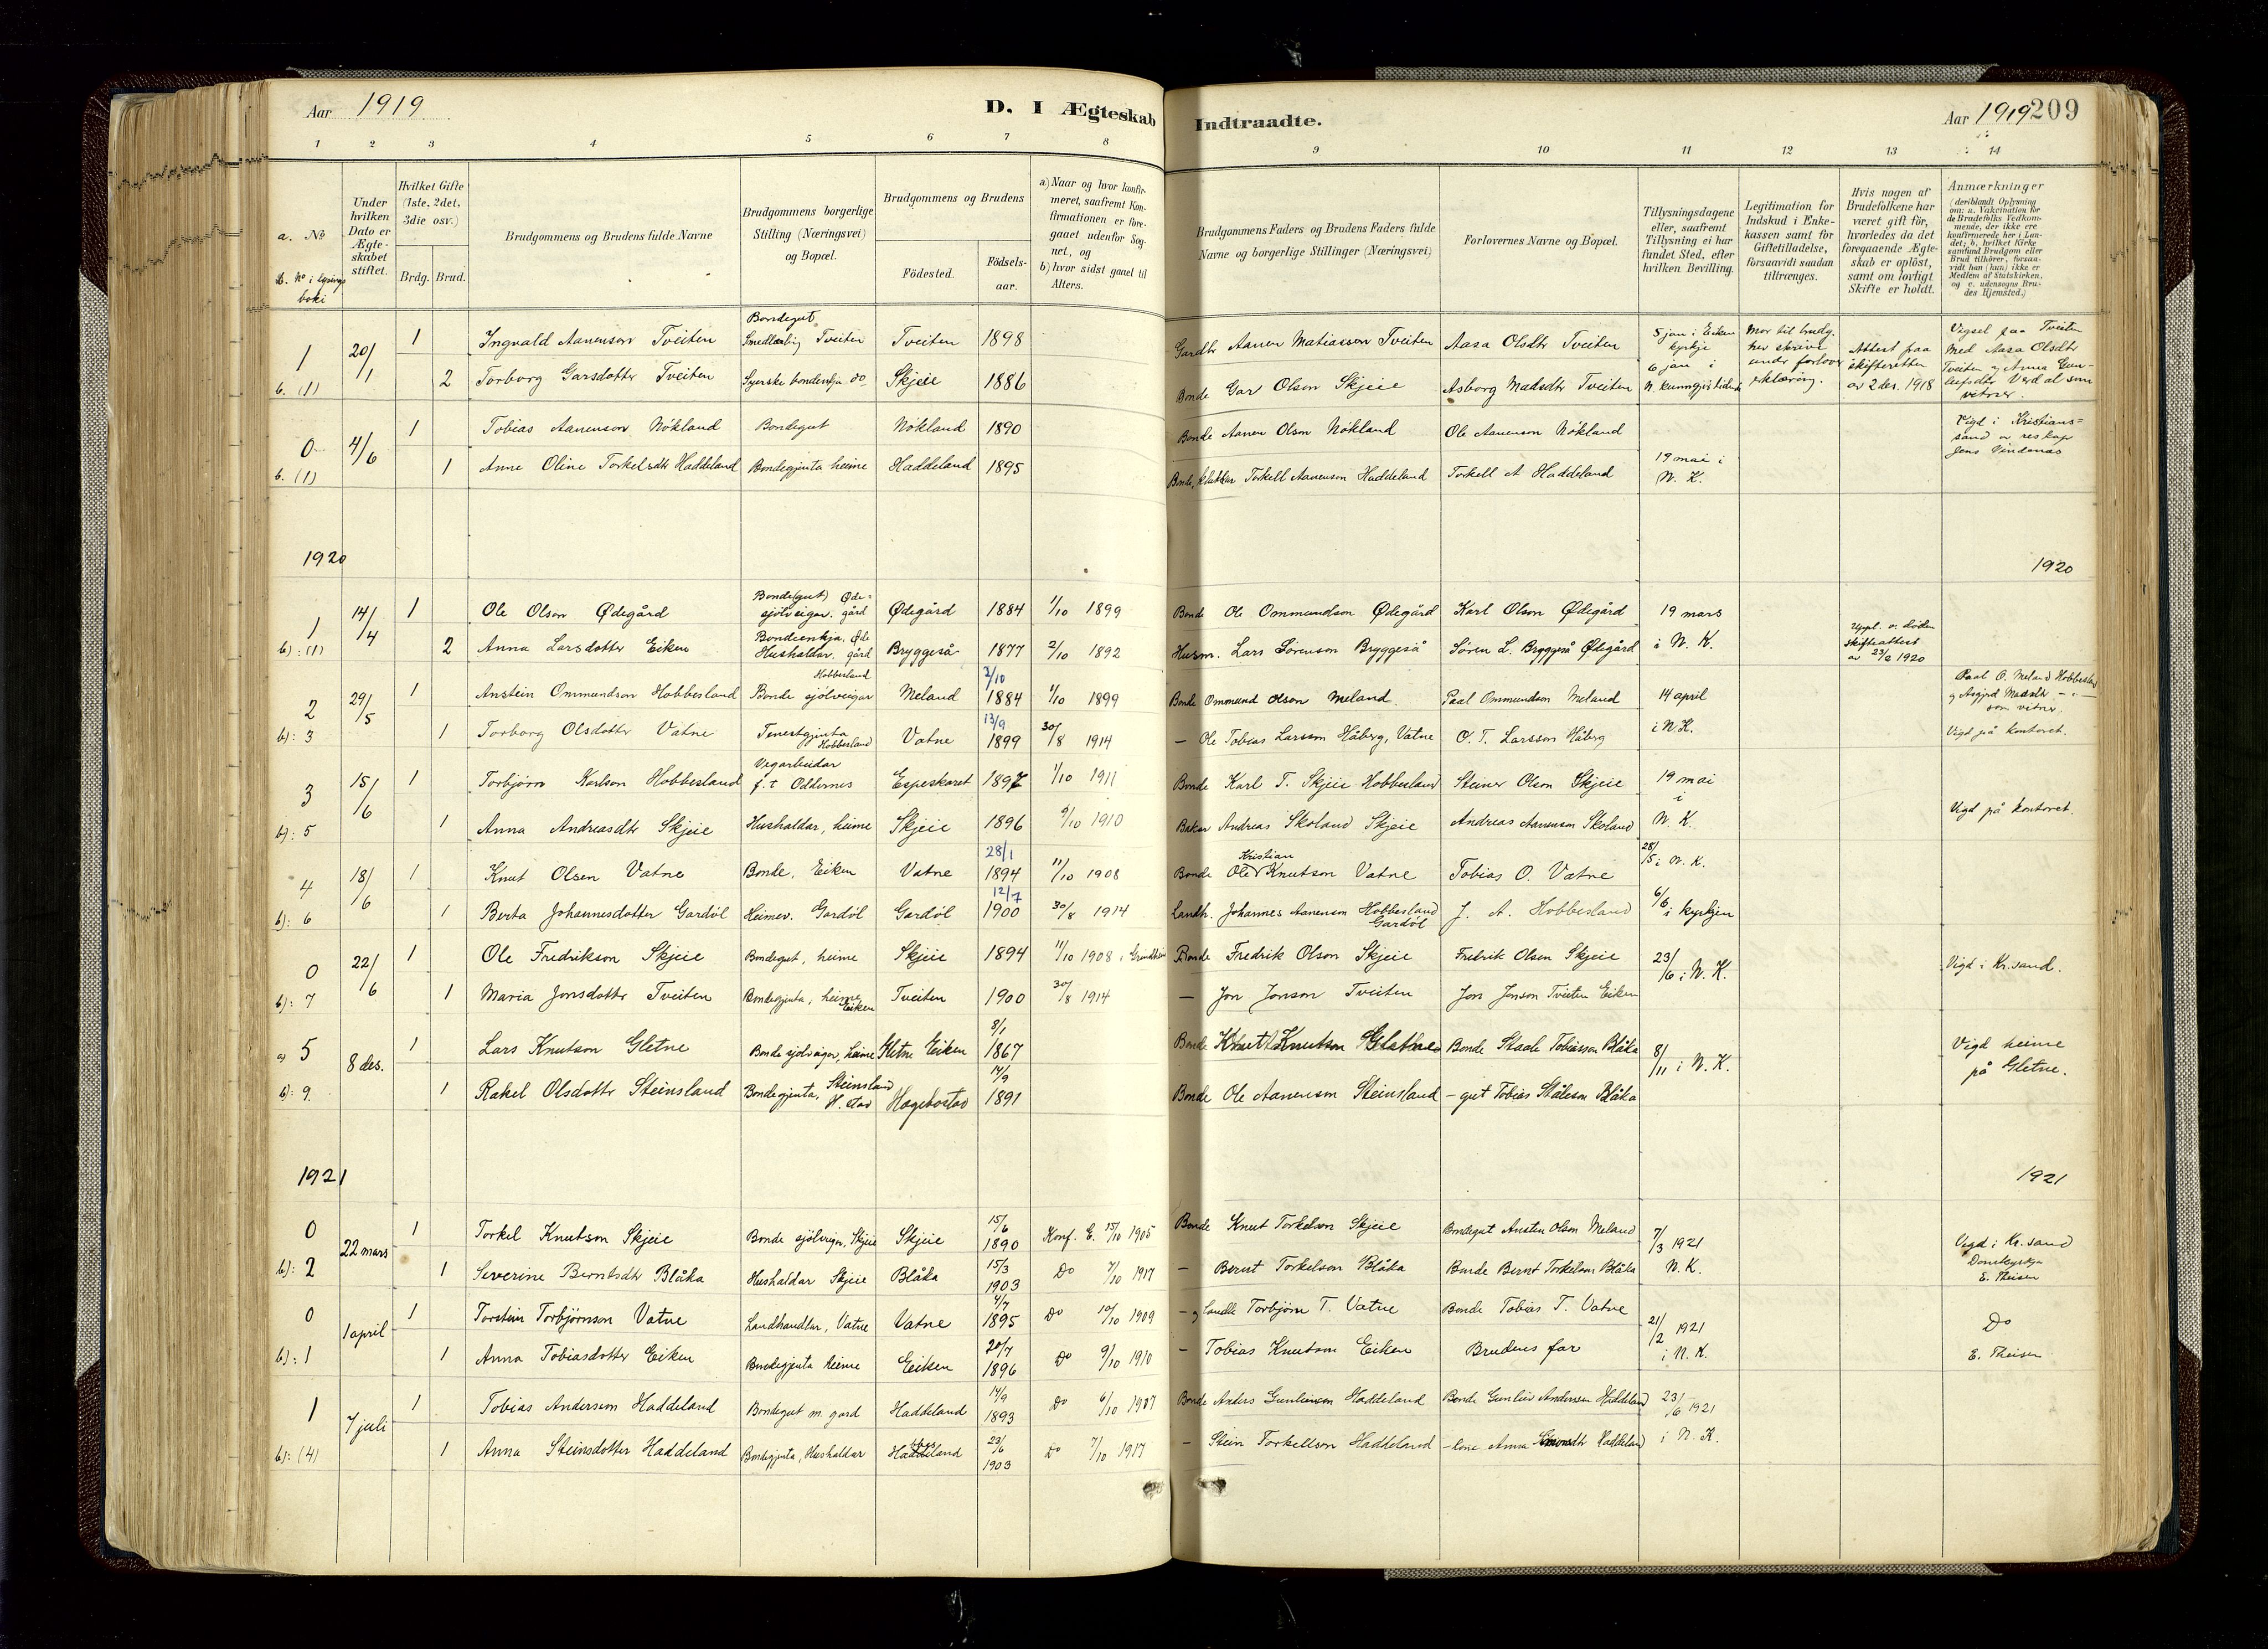 Aar 1919
D. I Ægteskab
Indtraadte.
Aar 1919 209
1 2 3 4 5 6 7 8 9 10 11 12 13 14
a. No
b. No i lysings
boki
Under
hvilken
Dato er
Ægte-
skabet
stiftet.
Hvilket Gifte
(1ste, 2det,
3die osv.)
Brdg. Brud.
Brudgommens og Brudens fulde Navne
Brudgommens borgerlige
Stilling (Næringsvei)
og Bopæl.
Brudgommens og Brudens
Födested.
Födsels-
aar.
a) Naar og hvor konfir-
meret, saafremt Kon-
firmationen er fore-
gaaet udenfor Sog-
net, og
b) hvor sidst gaaet til
Alters.
Brudgommens Faders og Brudens Faders fulde
Navne og borgerlige Stillinger (Næringsvei)
Forlovernes Navne og Bopæl.
Tillysningsdagene
eller, saafremt
Tillysning ei har
fundet Sted, efter
hvilken Bevilling.
Legitimation for
Indskud i Enke-
kassen samt for
Giftetilladelse,
forsaavidt saadan
tiltrænges.
Hvis nogen af
Brudefolkene har
været gift för,
hvorledes da det
foregaaende Ægte-
skab er oplöst,
samt om lovligt
Skifte er holdt.
Anmærkninger
(deriblandt Oplysning
om: a. Vakcination for
de Brudefolks Vedkom-
mende, der ikke ere
konfirmerede her i Lan-
det; b. hvilket Kirke-
samfund Brudgom eller
Brud tilhörer, forsaa-
vidt han (hun) ikke er
Medlem af Statskirken,
og c. udensogns Bru-
des Hjemsted.)
1 20/1 1 Ingvald Aanenson Tveiten Bondegut Smedlærling Tveiten Tveiten 1898 Gardbr Aanen Matiasson Tveiten Aasa Olsdtr Tveiten 5 jan i Eiken kyrkje
b. (1) 2 Torborg Garsdotter Tveiten Syerske bondenkja do Skjeie 1886 Bonde Gar Olson Skjeie Asborg Madsdtr Tveiten 6 jan i N. kunngjistidende
Mor til brudg. her skrive under forlover erklæring.
Attest paa skifteretten av 2 des. 1918
Vigsel paa Tveiten med Aasa Olsdtr Tveiten og Anna Gunleifsdtr Verdal som vitner.
0 4/6 1 Tobias Aanenson Nökland Bondegut Nökland 1890 Bonde Aanen Olson Nökland Ole Aanenson Nökland
b. (1) 1 Anne Oline Torkelsdtr Haddeland Bondegjenta heime Haddeland 1895 Bonde, klukkar Torkell Aanenson Haddeland Torkell A Haddeland 19 mai i N. K.
Vigd i Kristianssand av res kap Jens Vindenas
1920 1920
1 14/4 1 Ole Olson Ødegård Bonde(gut) sjölveigar. Ødegård Ødegård 1884 1/10 1899 Bonde Ole Ommundson Ødegård Karl Olson Ødegård 19 mars
b): (1) 2 Anna Larsdotter Eiken Bondeenkja, Hushaldar. Ødegård Bryggeså 1877 2/10 1892 Husm. Lars Sörenson Bryggeså Sören L. Bryggeså Ødegård i N. K.
Uppl. v. döden skifteattest av 23/2 1920
2 29/5 1 Anstein Ommundson Hobbesland Bonde sjölveigar Hobbesland Meland 3/10 1884 1/10 1899 Bonde Ommund Olson Meland Paal Ommundson Meland 14 april
b): 3 1 Torborg Olsdotter Vatne Tenestgjenta Hobbesland Vatne 13/9 1899 30/8 1914 – Ole Tobias Larsson Håberg, Vatne O. T. Larsson Håberg i N.K.
Paal O. Meland Hobbesland og Asgjerd Madsdtr – " – som vitner.
Vigd på kontoret.
3 15/6 1 Torbjörn Karlson Hobbesland Vegarbeidar f.t Oddernes Espeskaret 1897 1/10 1911 Bonde Karl T. Skjeie Hobbesland Steiner Olson Skjeie 19 mai i
b): 5 1 Anna Andreasdtr Skjeie Hushaldar, heime Skjeie 1896 9/10 1910 Bakar Andreas Skoland Skjeie Andreas Aanenson Skoland N. K.
Vigd på kontoret.
4 18/6 1 Knut Olsen Vatne Bonde, Eiken Vatne 28/1 1894 11/10 1908 Bonde Ole Kristian Knutson Vatne Tobias O. Vatne 28/5 i N. K.
b): 6 1 Berta Johannesdotter Gardöl Heimev. Gardöl Gardöl 12/7 1900 30/8 1914 Landh. Johannes Aanenson Hobbesland Gardöl J. A. Hobbesland 6/6 i kyrkjen
0 22/6 1 Ole Fredrikson Skjeie Bondegut, heime Skjeie 1894 11/10 1908 i Grindheim Bonde Fredrik Olson Skjeie Fredrik Olsen Skjeie 23/6 i N. K. Vigd i Kr.sand.
b): 7 1 Maria Jonsdottr Tveiten Bondegjenta, heime Eiken Tveiten 1900 30/8 1914 – Jon Jonson Tveiten Jon Jonson Tveiten Eiken
a) 5 8 des. 1 Lars Knutson Gletne Bonde sjölveigar, heime Gletne Eiken 8/1 1867 Bonde Knut Knutson Gletne Bonde Staale Tobiasson Blåka 8/11 i N. K. Vigd heime
b): 9. 1 Rakel Olsdottr Steinsland Bondegjenta, Steinsland H.stad Hægebostad 14/9 1891 Bonde Ole Aanenson Steinsland – gut Tobias Ståleson Blåka på Gletne.
1921 1921
0 22 mars 1 Torkel Knutson Skjeie Bonde sjölveigar, Skjeie Skjeie 15/6 1890 Konf. E. 15/10 1905 Bonde Knut Torkelson Skjeie Bondegut Ansten Olson Meland 7/3 1921 Vigd i Kr.sand
b): 2 1 Severine Berntsdtr Blåka Hushaldar Skjeie Blåka 15/3 1903 Do 7/10 1917 – Bernt Torkelson Blåka Bonde Bernt Torkelson Blåka N. K. Domkyrkja E. Theisen
0 1 april 1 Torstein Torbjörnson Vatne Landhandlar, Vatne Vatne 4/7 1895 Do 10/10 1909 – og landh Torbjörn T. Vatne Bonde Tobias T. Vatne 21/2 1921 Do
b): 1 1 Anna Tobiasdotter Eiken Bondegjenta heime Eeiken 20/7 1896 Do 9/10 1910 – Tobias Knutson Eiken Brudens far i N. K. E. Theisen
1 7 juli 1 Tobias Anderson Haddeland Bondegut m. gard Haddeland 14/9 1893 Do 6/10 1907 Bonde Anders Gunleivson Haddeland Bonde Gunleiv Anderson Haddeland 23/6 1921
b): (4) 1 Anna Steinsdotter Haddeland Bondegjenta, Hushaldar Haddeland 23/6 1903 Do 7/10 1917 – Stein Torkellson Haddeland – kone Anna Haddeland i N. K.